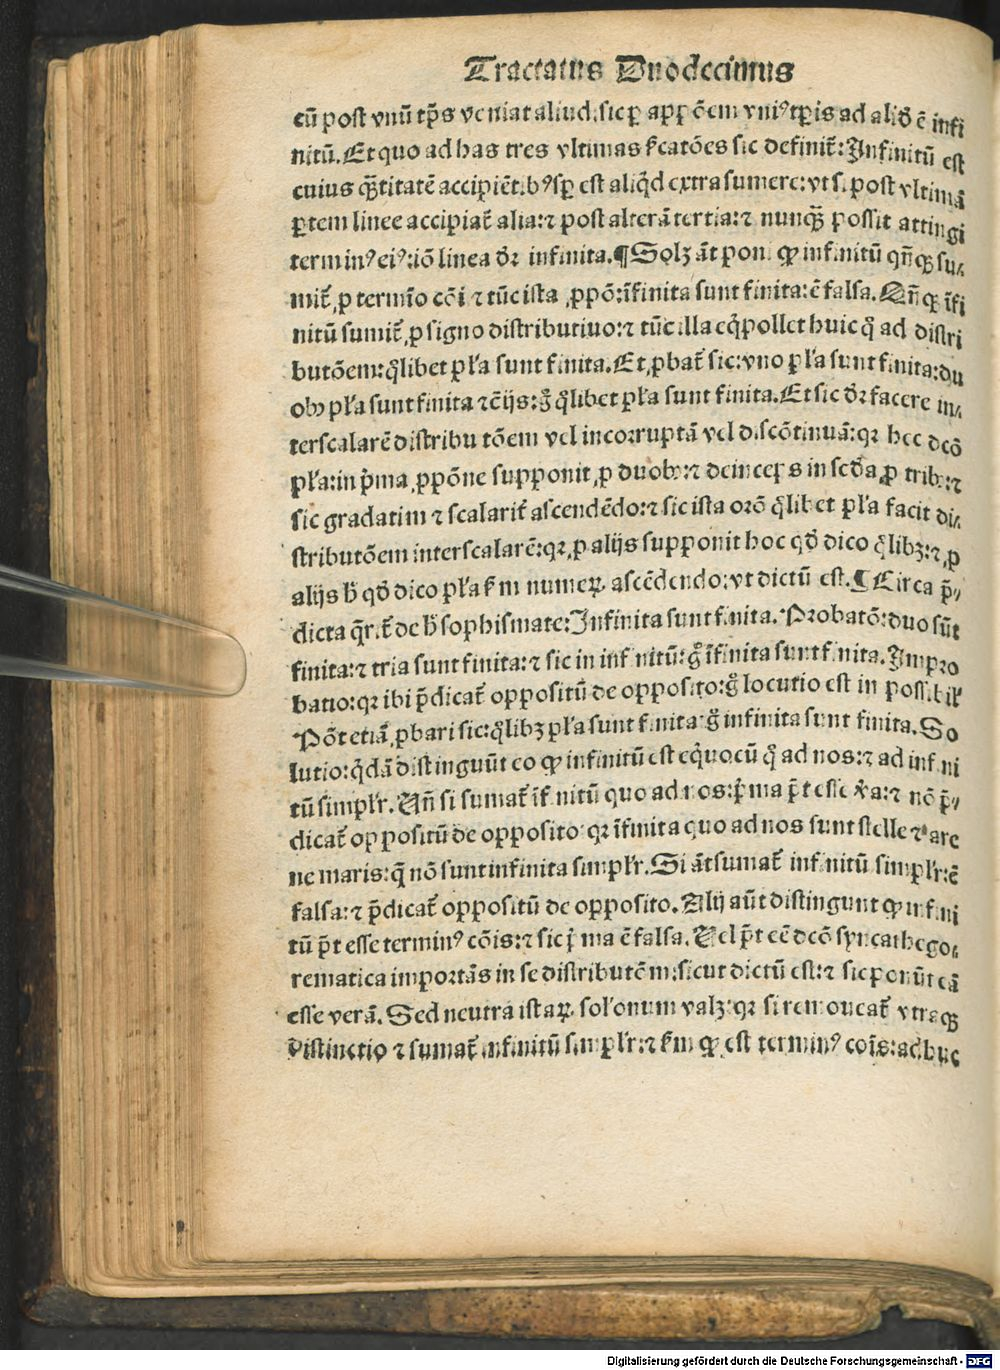 Tractatus Duodecimus
cū post vnū tp̄s veniat aliud. sic ꝑ appōem vniꝰ tꝑis ad aliđ ē infi
nitū. Et quo ad has tres vltimas sc̄catōes sic definit᷑: Infinitū est
cuius q̄titatē accipiēt. bꝰ sꝑ est aliqd̄ extra sumere: vt si post vltimā
ꝑtem linee accipiat᷑ alia: ⁊ post alterā tertia: ⁊ nunq̄ possit attingi
terminꝰ eiꝰ: iō linea dr̄ infinita. ¶ Solꝫ āt poni ꝙ infinitū qn̄qꝫ su⸗
mit᷑ ꝓ termīo cōi ⁊ tūc ista ꝓpō: īfinita sunt finita: ē falsa. Qn̄qꝫ īfi
nitū sumit᷑ ꝓ signo distributiuo: ⁊ tūc illa eq̄pollet huic q̄ ad distri
butōem: q̄libet pl̄a sunt finita. Et ꝓbat᷑ sic: vno pl̄a sunt finita: du
obꝰ pl̄a sunt finita ⁊ cēijs: gͦ q̄libet pl̄a sunt finita. Et sic dr̄ facere in⸗
terscalarē distributōem vel incorruptā vel discōtinuā: qꝛ hec dcō
pl̄a: in p̄ma ꝓpōne supponit ꝓ duobꝰ: ⁊ deinceps in scd̄a ꝓ tribꝰ: ⁊
sic gradatim ⁊ scalarit᷑ ascendēdo: ⁊ sic ista orō q̄libet pl̄a facit di⸗
stributōem interscalarē: qꝛ ꝓ alijs supponit hoc qđ dico q̄libꝫ: ⁊ ꝓ
alijs h̄ qđ dico pl̄a sm̄ numeꝝ ascēdendo: vt dictū est. ¶ Circa p̄⸗
dicta q̄rit᷑ de h̄ sophismate: Infinita sunt finita. Probatō: duo sūt
finita: ⁊ tria sunt finita: ⁊ sic in infinitū: gͦ īfinita sunt finita. Impro
batio: qꝛ ibi p̄dicat᷑ oppositū de opposito: gͦ locutio est impossibil᷑
Pōt etiā ꝓbari sic: q̄libꝫ pl̄a sunt finita: gͦ infinita sunt finita. So
lutio: q̄dā distinguūt eo ꝙ infinitū est eq̄uocū q̄ ad nos: ⁊ ad infini
tū simpl̄r. Vn̄ si sumat᷑ īfinitū quo ad nos: p̄ma p̄t esse v̄a: ⁊ nō p̄⸗
dicat᷑ oppositū de opposito: qꝛ īfinita quo ad nos sunt stelle ⁊ are
ne maris: q̄ nō sunt infinita simpl̄r. Si āt sumat᷑ infinitū simpl̄r: ē
falsa: ⁊ p̄dicat᷑ oppositū de opposito. Alij aūt distingunt ꝙ infini
tū p̄t esse terminꝰ cōis: ⁊ sic p̄ma ē falsa. Vel p̄t eē dcō syncathego⸗
rematica importās in se distributōem: sicut dictū est: ⁊ sic ponūt eā
esse verā. Sed neutra istaꝝ solonum valꝫ: qꝛ si remoueat᷑ vtraqꝫ
distinctio ⁊ sumat᷑ infinitū simpl̄r: ⁊ sm̄ ꝙ est terminꝰ cōis: adhuc
Digitalisierung gefördert durch die Deutsche Forschungsgemeinschaft - DFG